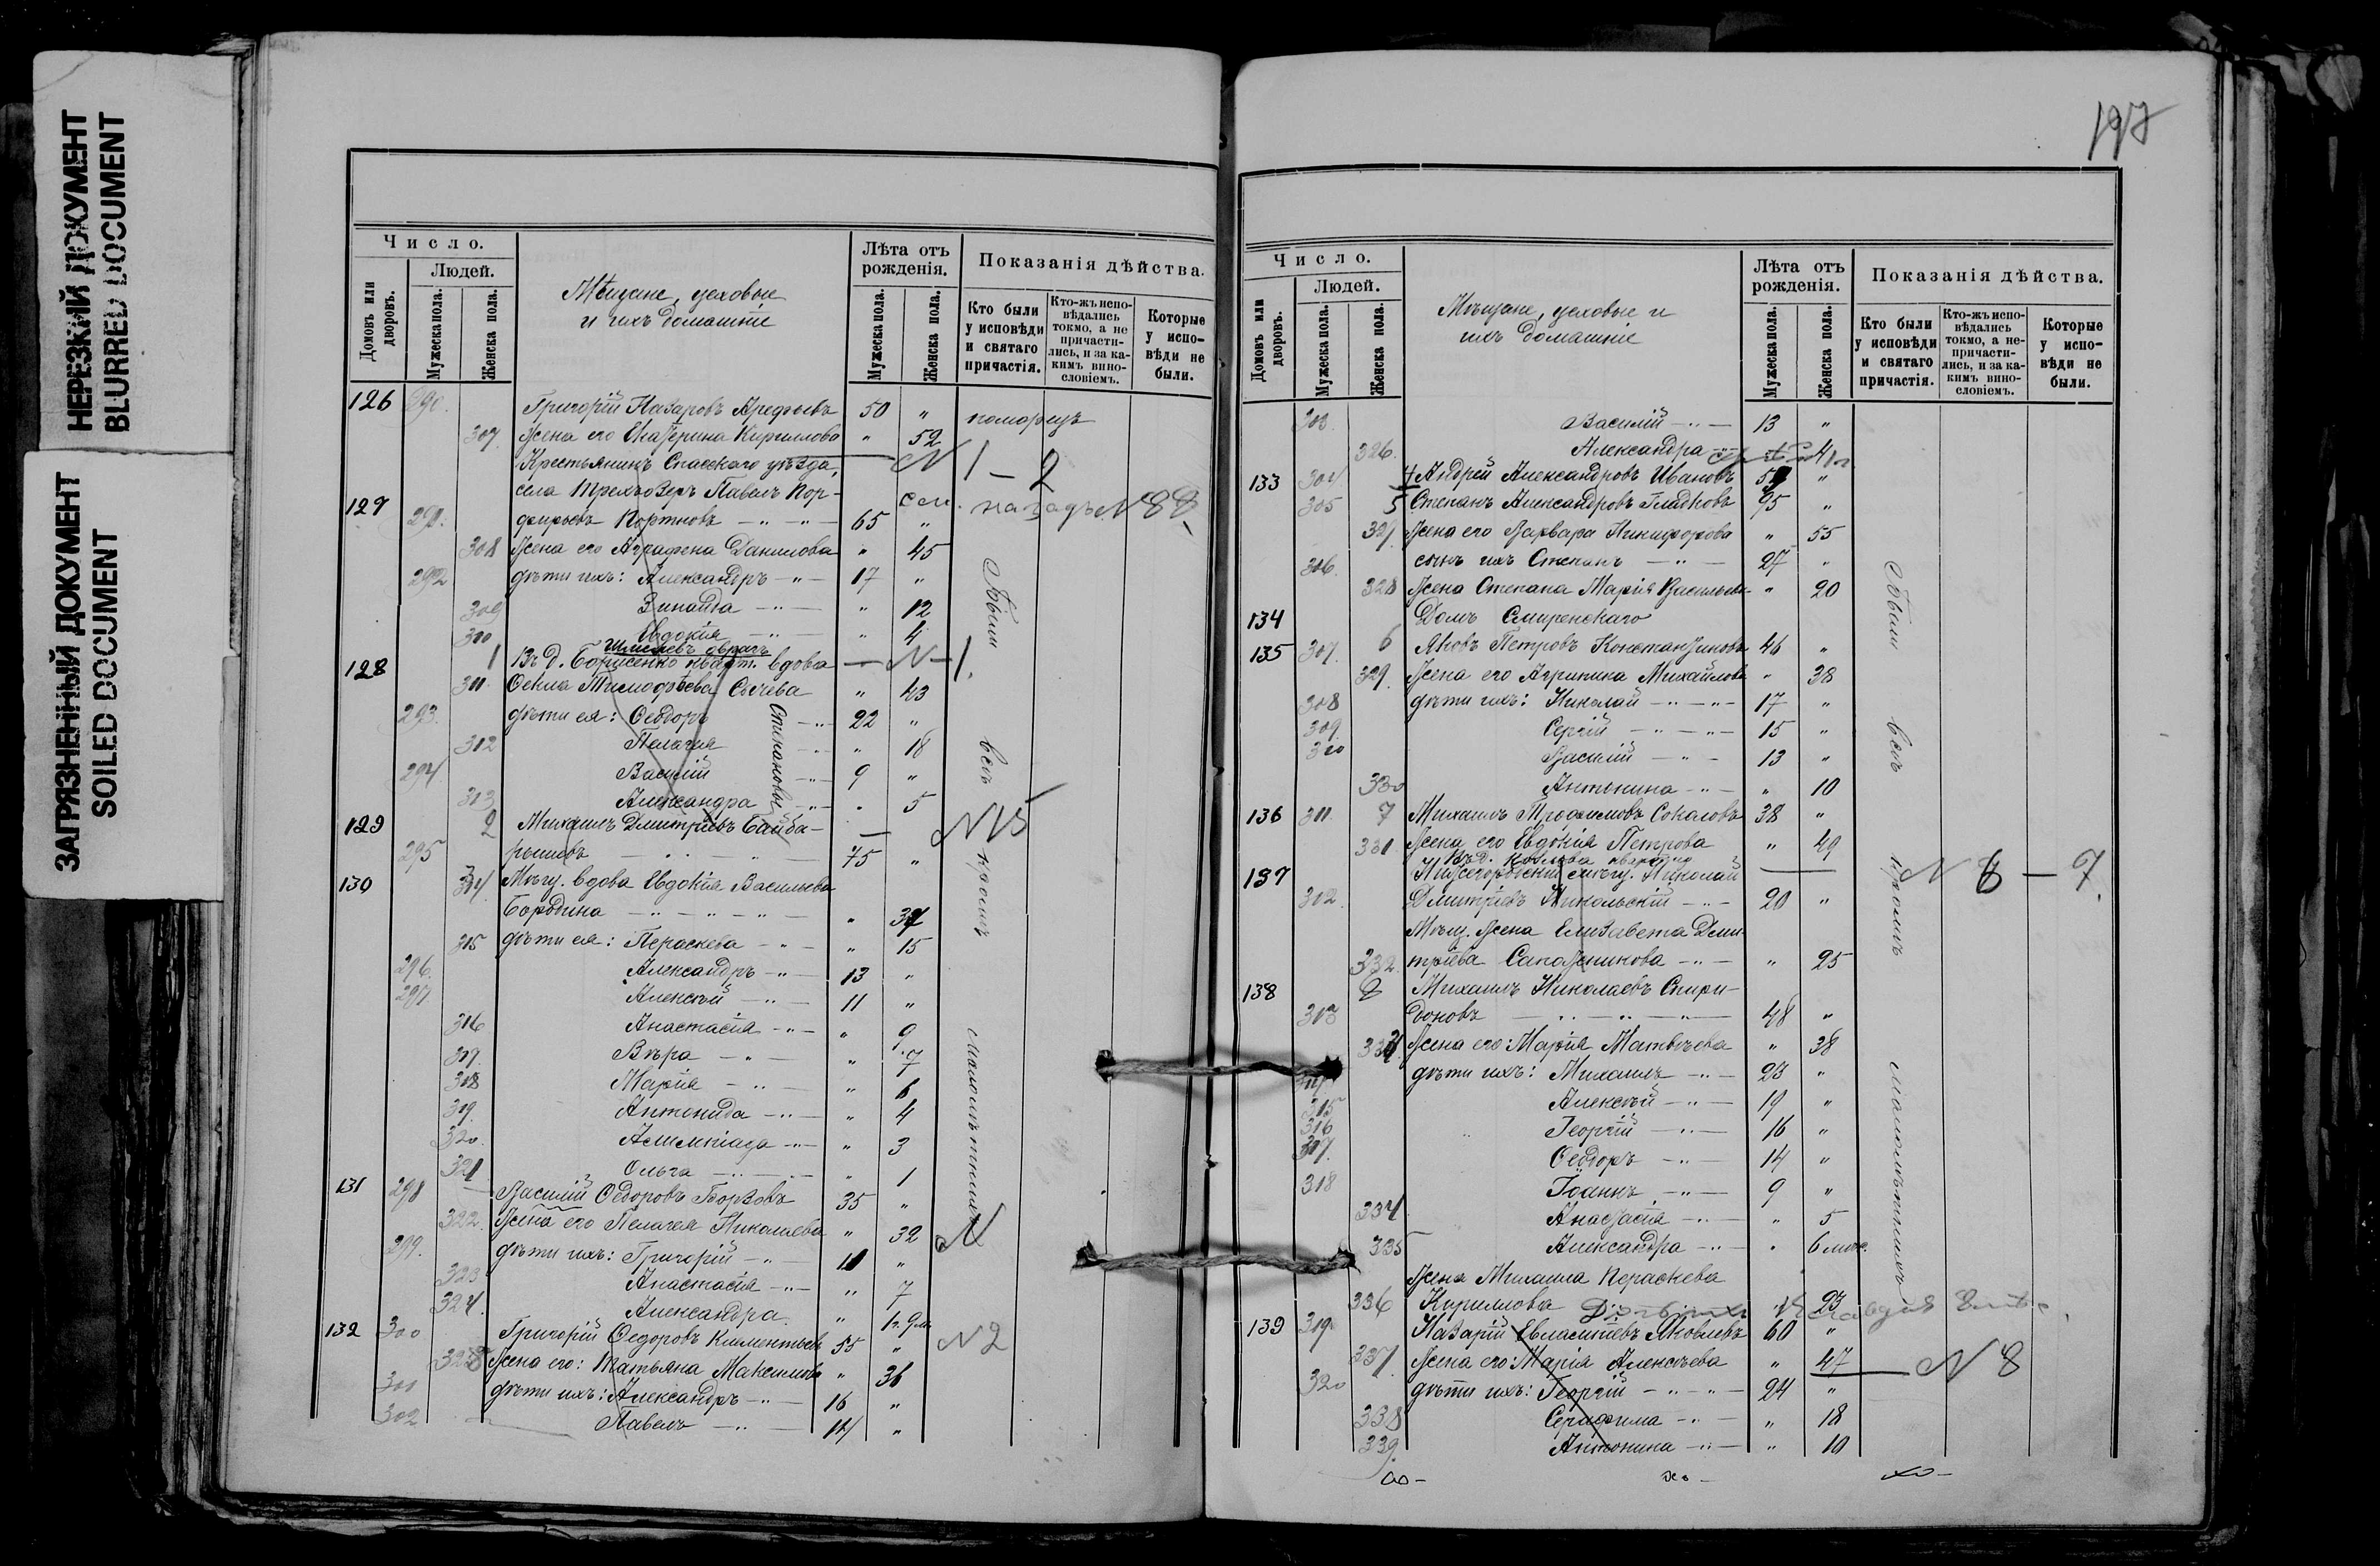 НЕРЕЗКИЙ ДОКУМЕНТ
BLURRED DOCUMENT
ЗАГРЯЗНЕННЫЙ ДОКУМЕНТ
SOILED DOCUMENT
Число.
Людей.
Домовъ или дворовъ.
Мужеска пола.
Женска пола.
Мѣщане, цеховые
и ихъ домашніе
Лѣта отъ рожденія.
Мужеска пола.
Женска пола.
Показанія дѣйства.
Кто были у исповѣди и святаго причастія.
Кто-жъ исповѣдались токмо, а не причастились, и за какимъ винословіемъ.
Которые у исповѣди не были.
126 290. Григорій Назаровъ Арефьевъ 50 „ поморецъ
307 Жена его Екатерина Кириллова „ 52
Крестьянинъ Спасскаго уѣзда, N 1 – 2
села Трехъозеръ Павелъ Пор-
127 291. фирьевъ Портновъ 65 „ см. назадъ N 88
308 Жена его Аграфена Данилова „ 45
292 дѣти ихъ: Александръ 17 „
309 Зинаида „ 12
310 Евдокія „ 4
128 1 Въ д. Борисенко кварт. вдова N 1.
311 Ѳекла Тимофѣева Сычева „ 43
293. дѣти ея: Ѳеодоръ 22 „
312 Пелагія „ 18
294 Василій 9 „
313 Александра „ 5
Степановы
129 2 Михаилъ Дмитріевъ Байба- N 15
295 рышевъ 75 „
130 314 Мѣщ. вдова Евдокія Васильева
Бородина „ 37
315 дѣти ея: Параскева „ 15
296. Александръ 13 „
297 Алексѣй 11 „
316 Анастасія „ 9
317 Вѣра „ 7
318 Марія „ 6
319. Антонида „ 4
320. Алимпіада „ 3
321 Ольга „ 1
131 298 Василій Ѳедоровъ Борзовъ 35 „
322. Жена его Пелагея Николаева „ 32 N
299. дѣти ихъ: Григорій 11 „
323 Анастасія „ 7
324. Александра „ 1 г. 9 м.
132 300 Григорій Ѳедоровъ Климентьевъ 55 „ N 2
325 Жена его: Татьяна Максимова „ 36
301 дѣти ихъ: Александръ 16 „
302 Павелъ 14 „
Были всѣ кромѣ малолѣтнихъ
197
Число.
Людей.
Домовъ или дворовъ.
Мужеска пола.
Женска пола.
Мѣщане, цеховые и
ихъ домашніе
Лѣта отъ рожденія.
Мужеска пола.
Женска пола.
Показанія дѣйства.
Кто были у исповѣди и святаго причастія.
Кто-жъ исповѣдались токмо, а не причастились, и за какимъ винословіемъ.
Которые у исповѣди не были.
303. Василій 13 „
326. Александра 4
133 304 4 Андрей Александровъ Ивановъ „
305 5 Степанъ Александровъ Гладковъ 95 „
327 Жена его Варвара Никифорова „ 55
306. сынъ ихъ Степанъ 27 „
328 Жена Степана Марія Васильева „ 20
134 Домъ Смиренскаго
135 307. 6 Яковъ Петровъ Константиновъ 46 „
329. Жена его Агрипина Михайлова „ 38
308 дѣти ихъ: Николай 17 „
309. Сергій 15 „
310 Василій 13 „
330 Антонина „ 10
136 311. 7 Михаилъ Трофимовъ Соколовъ 38 „
331 Жена его Евдокія Петрова „ 49
137 Нижегородскій мѣщ. Николай N 6 – 7.
312. Дмитріевъ Никольскій 20 „
Мѣщ. Жена Елизавета Дми-
332. тріева Сапожникова „ 25
138 8 Михаилъ Николаевъ Спири-
313 доновъ 48 „
333 Жена его: Марія Матвѣева „ 38
314 дѣти ихъ: Михаилъ 23 „
315 Алексѣй 19 „
316 Георгій 16 „
317. Ѳеодоръ 14 „
318 Іоаннъ 9 „
334 Анастасія „ 5
335 Александра „ 6 мѣс.
Жена Михаила Параскева
336 Кириллова „ 23
139 319. Назарій Евлампіевъ Яковлевъ 60 „
337. Жена его: Марія Алексѣева „ 47 N 8
320 дѣти ихъ: Георгій 24 „
338 Серафима „ 18
339. Антонина „ 10
Были всѣ кромѣ малолѣтнихъ